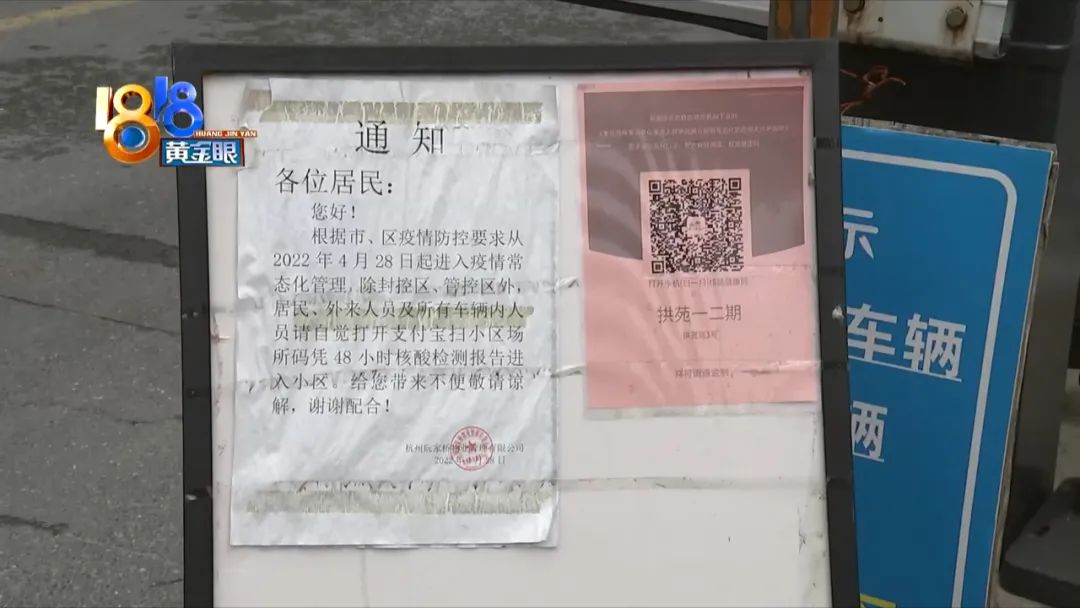 1818
HUANG JIN YAN
黄金眼
通知
各位居民：
您好！
根据市、区疫情防控要求从
2022年4月28日起进入疫情常
态化管理，除封控区、管控区外，
居民、外来人员及所有车辆内人
员请自觉打开支付宝扫小区场
所码凭48小时核酸检测报告进
入小区。给您带来不便敬请谅
解，谢谢配合！
2022年4月28日
拱苑一二期
示
车辆
辆